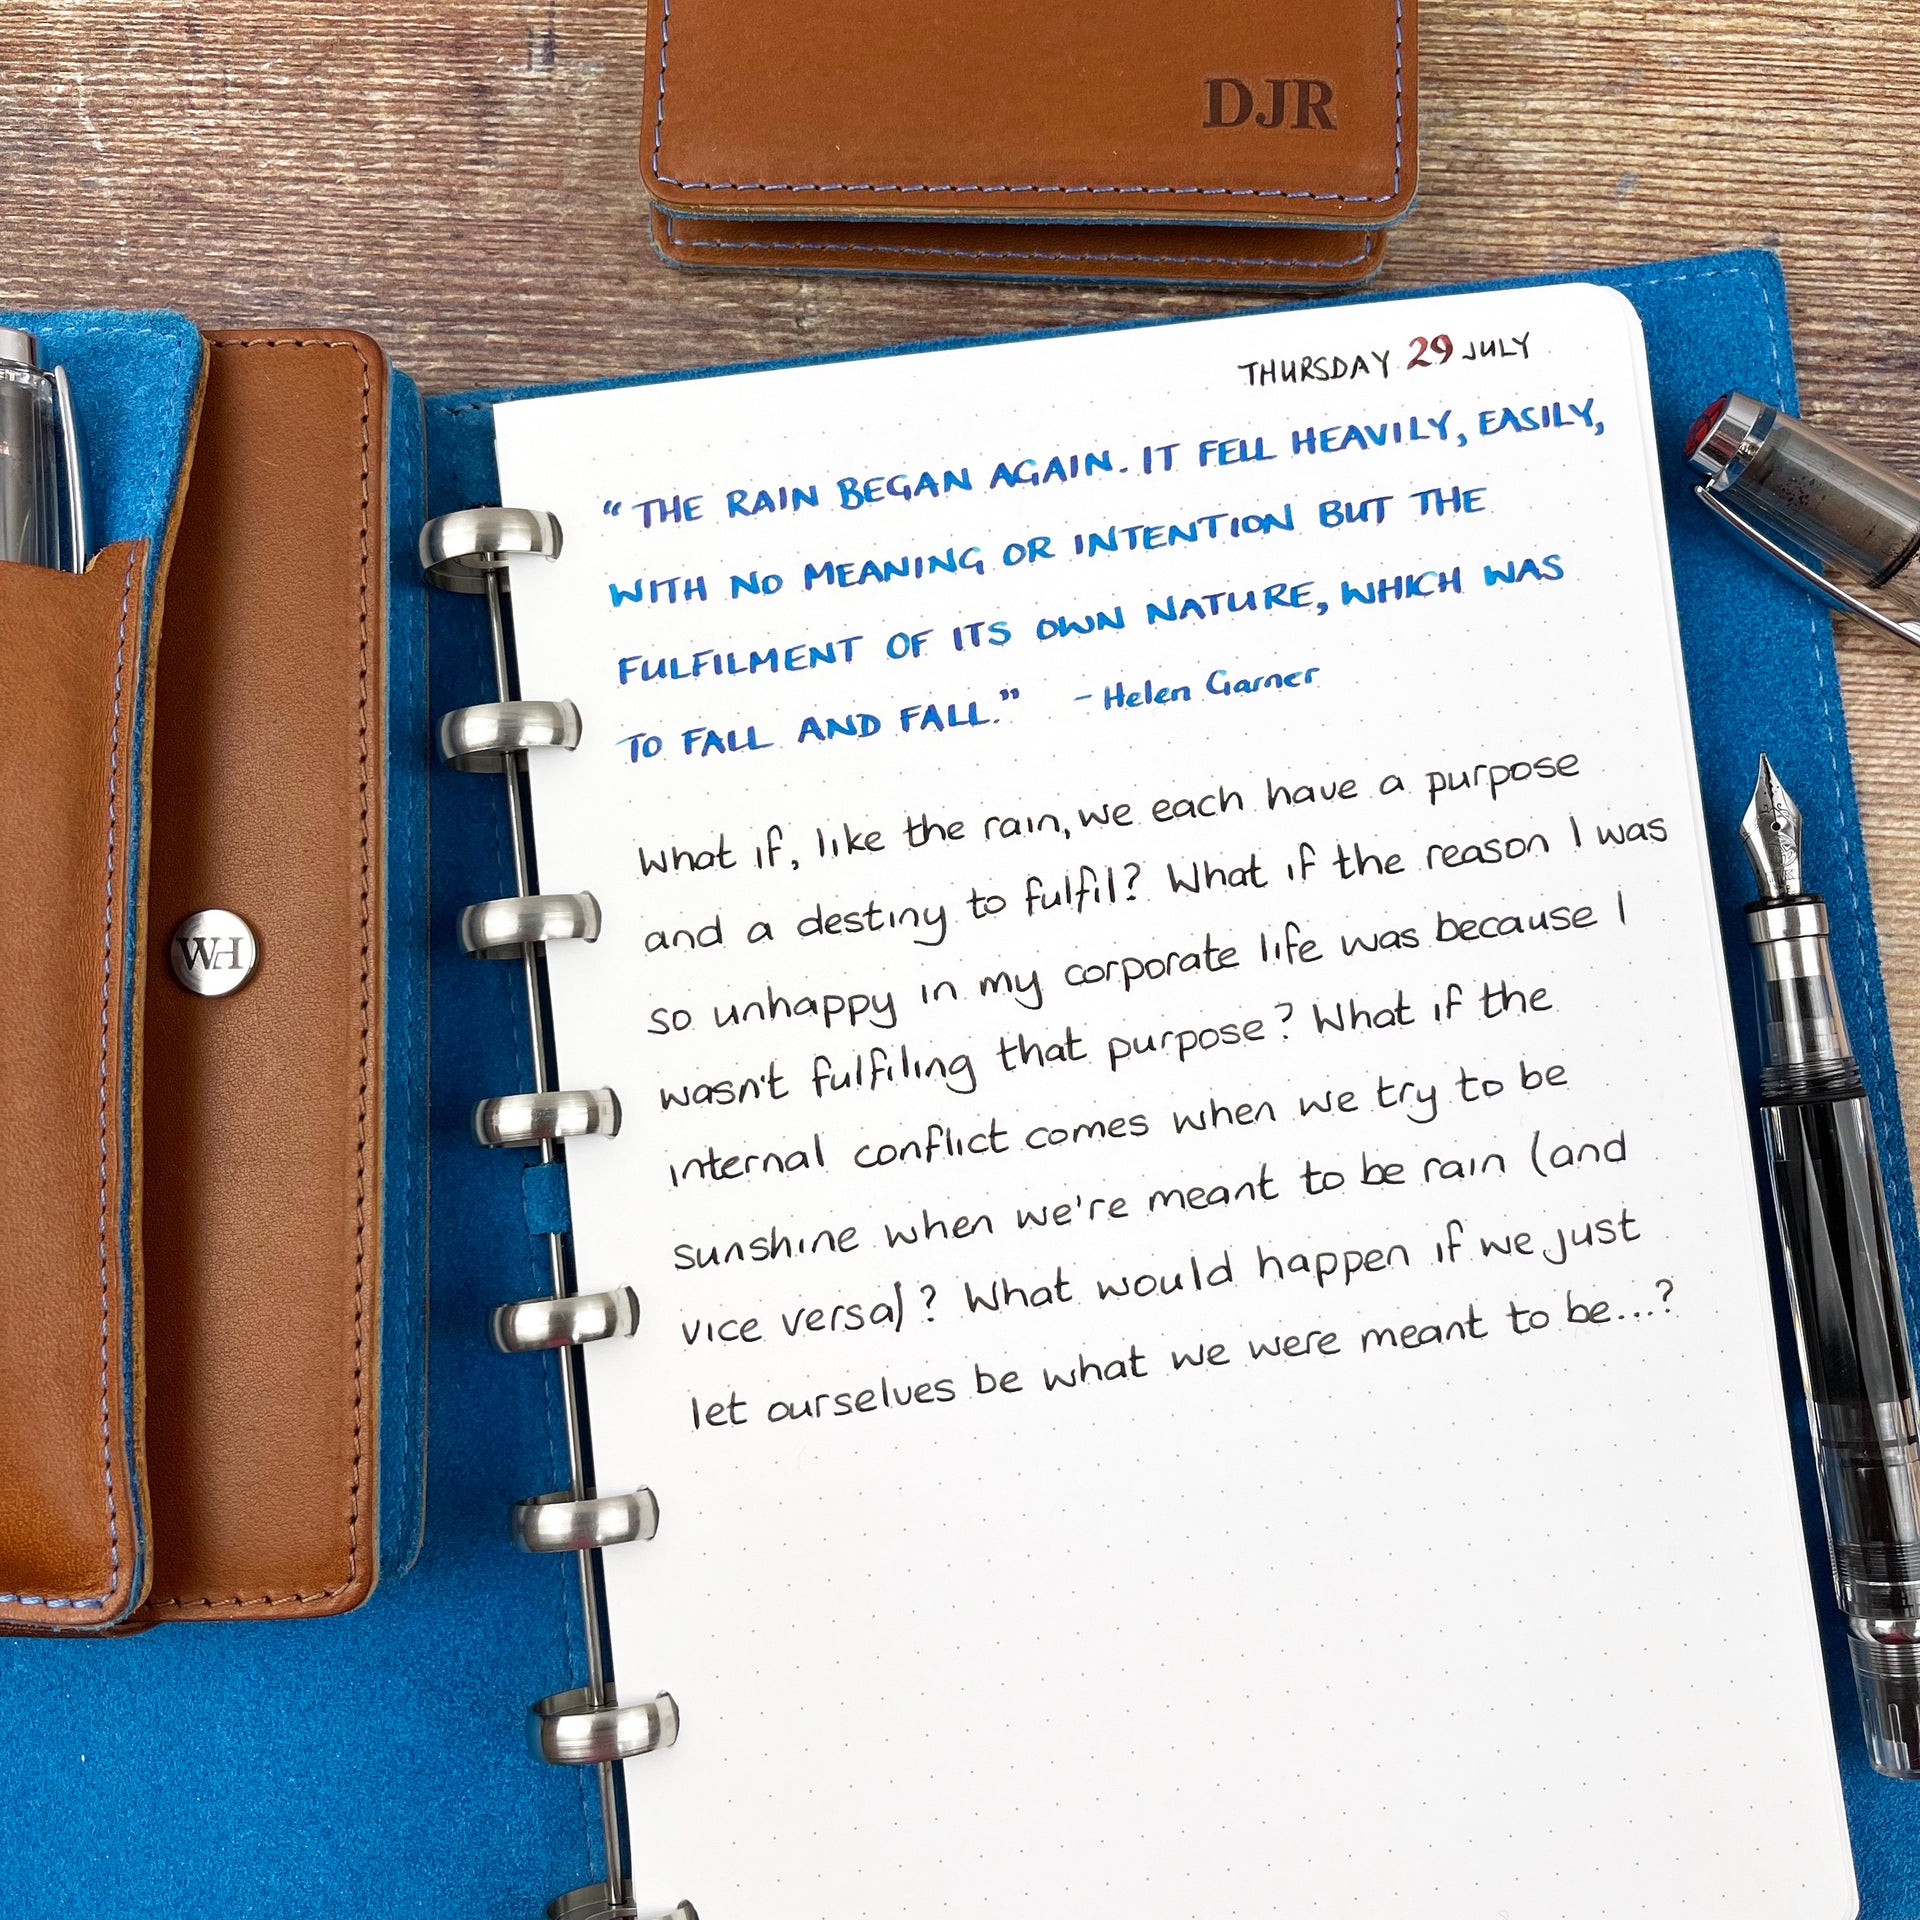 DJR
THURSDAY 29 JULY
“THE RAIN BEGAN AGAIN. IT FELL HEAVILY, EASILY,
WITH NO MEANING OR INTENTION BUT THE
FULFILMENT OF ITS OWN NATURE, WHICH WAS
TO FALL AND FALL.” - Helen Garner
What if, like the rain, we each have a purpose
and a destiny to fulfil? What if the reason I was
so unhappy in my corporate life was because I
wasn't fulfiling that purpose? What if the
internal conflict comes when we try to be
sunshine when we're meant to be rain (and
vice versa)? What would happen if we just
let ourselves be what we were meant to be...?
WH